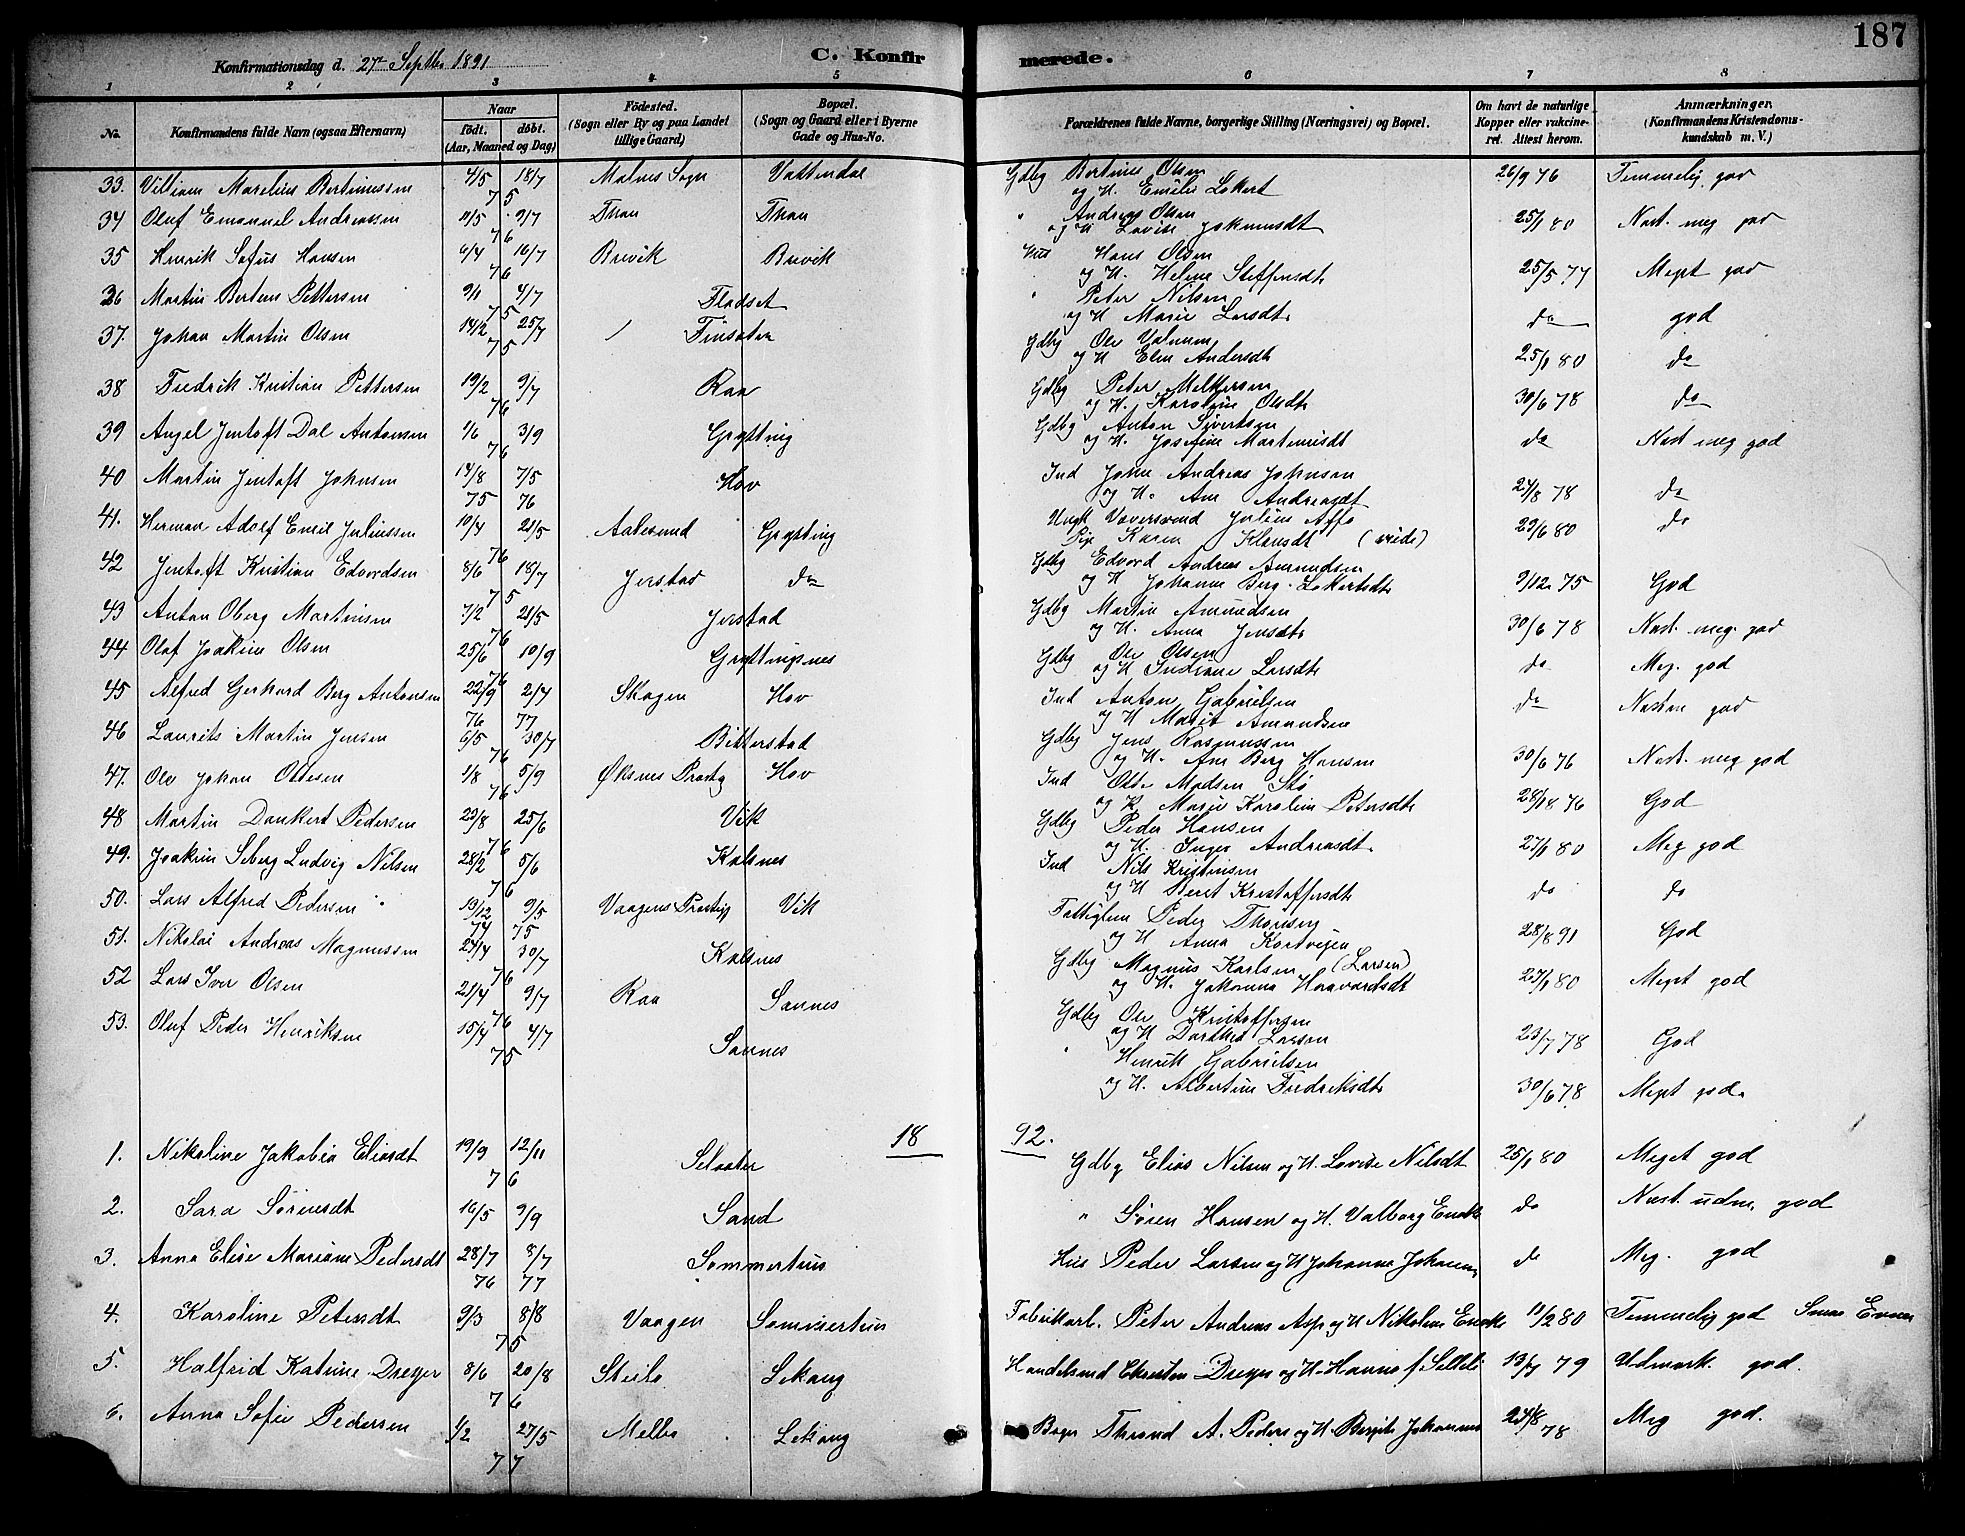 187
Konfirmationsdag d. 27de Septbr 1891 C. Konfirmerede.
1 2 3 4 5 6 7 8
No. Konfirmandens fulde Navn (ogsaa Efternavn) Naar født. døbt. (Aar, Maaned og Dag) Fødested. (Sogn eller By og paa Landet tillige Gaard) Bopæl. (Sogn og Gaard eller i Byerne Gade og Hus-No. Forældrenes fulde Navne, borgerlige Stilling (Næringsvei) og Bopæl. Om havt de naturlige Kopper eller vakcineret. Attest herom. Anmærkninger. (Konfirmandens Kristendomskundskab m. V.)
33. Villiam Marelius Bertinussen 4/5 18/7 75 Malnes Sogn Vattendal Gdbg Bertinus Olsen 26/9 76 Temmelig god
og H. Emilie Lokert
34 Oluf Emanuel Andreassen 11/5 9/7 76 Thau Thau " Andreas Olsen 25/1 80 Næst. meg god
og H Lovise Johnnsdt
35 Henrik Sofus Hansen 6/4 16/7 76 Brevik Brevik Hus Hans Olsen 25/5 77 Meget god
og H. Helene Steffensdt.
36 Martin Berteus Pettersen 9/1 4/7 75 Fladset " Peter Nilsen do god
og H Marie Larsdt.
37. Johan Martin Olsen 14/2 25/7 75 Finsæter Gdbg Ole Valnum 25/1 80 do
og H Elen Andersdt
38 Fredrik Kristian Pettersen 19/2 9/7 76 Raa Gdbg Peter Melkersen 30/6 78 do
og H. Karoline Olsdt
39 Angel Jentoft Dal Antonsen 1/6 3/9 76 Grytting Gdbg Anton Sivertsen do Næst meg god
og H. Josefine Martinusdt
40 Martin Jentoft Johnsen 14/8 75 7/5 76 Hov Ind John Andreas Johnsen 24/8 78 do
og H. Ane Andreasdt
41. Herman Adolf Emil Juliussen 10/4 21/5 76 Aalesund Grytting Ungk Julius 29/6 80 do
Pige Karen Klausdt
42 Jentoft Kristian Edvardsen 8/6 18/7 75 Jerstad do Gdbg Edvard Andreas Amundsen 9/12 75 God
og H Johanna Berg Lokertsdt
43 Anton Oberg Martinsen 7/2 21/5 76 Jerstad Gdbg Martin Amundsen 30/6 78 Næst. meg. god
og H. Anna Jensdt
44 Olaf Joakim Olsen 25/6 10/9 76 Gryttingsnes Gdbg Ole Olsen do Meg. god
og H Indiane Larsdt
45 Alfred Gerhard Berg Antonsen 22/9 76 2/4 77 Skogen Hov Ind Anton Gabrielsen do Næsten god
og H Marit Amundsen
46 Laurits Martin Jensen 6/5 30/7 76 Bitterstad Gdbg Jens Rasmussen 30/6 76 Næst. meg god
og H. Ane Berg Hansen
47. Ole Johan Ottesen 1/8 5/9 76 Øksnes Prestg Hov Ind Otte Madsen Stø 28/8 76 God
og H. Marie Karoline Petersdt
48 Martin Dankert Pedersen 23/8 25/6 76 Vik Gdbg Peder Hansen 27/1 80 Meg god
og H. Inger Andreasdt.
49. Joakim Seberg Ludvig Nilsen 28/2 5/6 76 Kalsnes Ind Nils Kristensen do do
og H Beret Kristoffersdt
50. Lars Alfred Pedersen 19/12 74 9/5 75 Vaagens Prestgj Vik Fattiglem Peder Thomsen 28/8 91 God
og H Anna
51. Nikolai Andreas Magnussen 24/4 30/7 76 Kalsnes Gdbg Magnus Karlsen (Larsen) 27/1 80 Meget god
og H. Jakobina Haavardsdt
52 Lars Iver Olsen 21/4 9/7 76 Raa Sannes Gdbg Ole Kristoffersen 23/7 78 God
og H Dorthea Larsen
53. Oluf Peder Henriksen 15/4 4/7 75 Sannes " Henrik Gabrielsen 30/6 78 Meget god.
og H. Albertine Fredriksdt
18 92.
1. Nikoline Jakobia Eliasdt 19/9 12/11 76 Selaater Gdbg Elias Nilsen og H. Lovise Nilsdt 25/1 80 Meget god
2. Sara Sørensdt 16/5 9/9 Sand " Søren Hansen og H. Valborg do Næst. udm. god
3. Anna Elise Mariane Pedersdt 28/7 76 8/7 77 Sommertun Hus Peder Larsen og H Johanna do Meg. god
4. Karoline Petersdt 9/3 8/8 75 Vaagen Sommertun Fabrikarb. Peter Andreas Asp og H Nikoline 11/2 80 Temmelig god
5. Halfrid Katrine Dreyer 8/6 20/8 76 Steilo Lekang Handelsmd Christen Dreyer og H. Hanna 13/7 79 Udmærk. god.
6. Anna Sofie Pedersen 1/2 27/5 77 Melbo Lekang Thrond A. Peders og H. Bergite 24/8 78 Meg god.